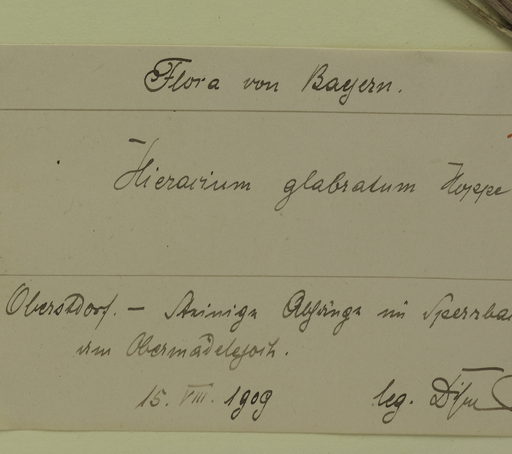 Flora von Bayern.
Hieracium glabratum Hoppe
Oberstdorf. – Steinige Abhänge im Sperrba
am Obermädelejoch.
15. VIII. 1909 leg.